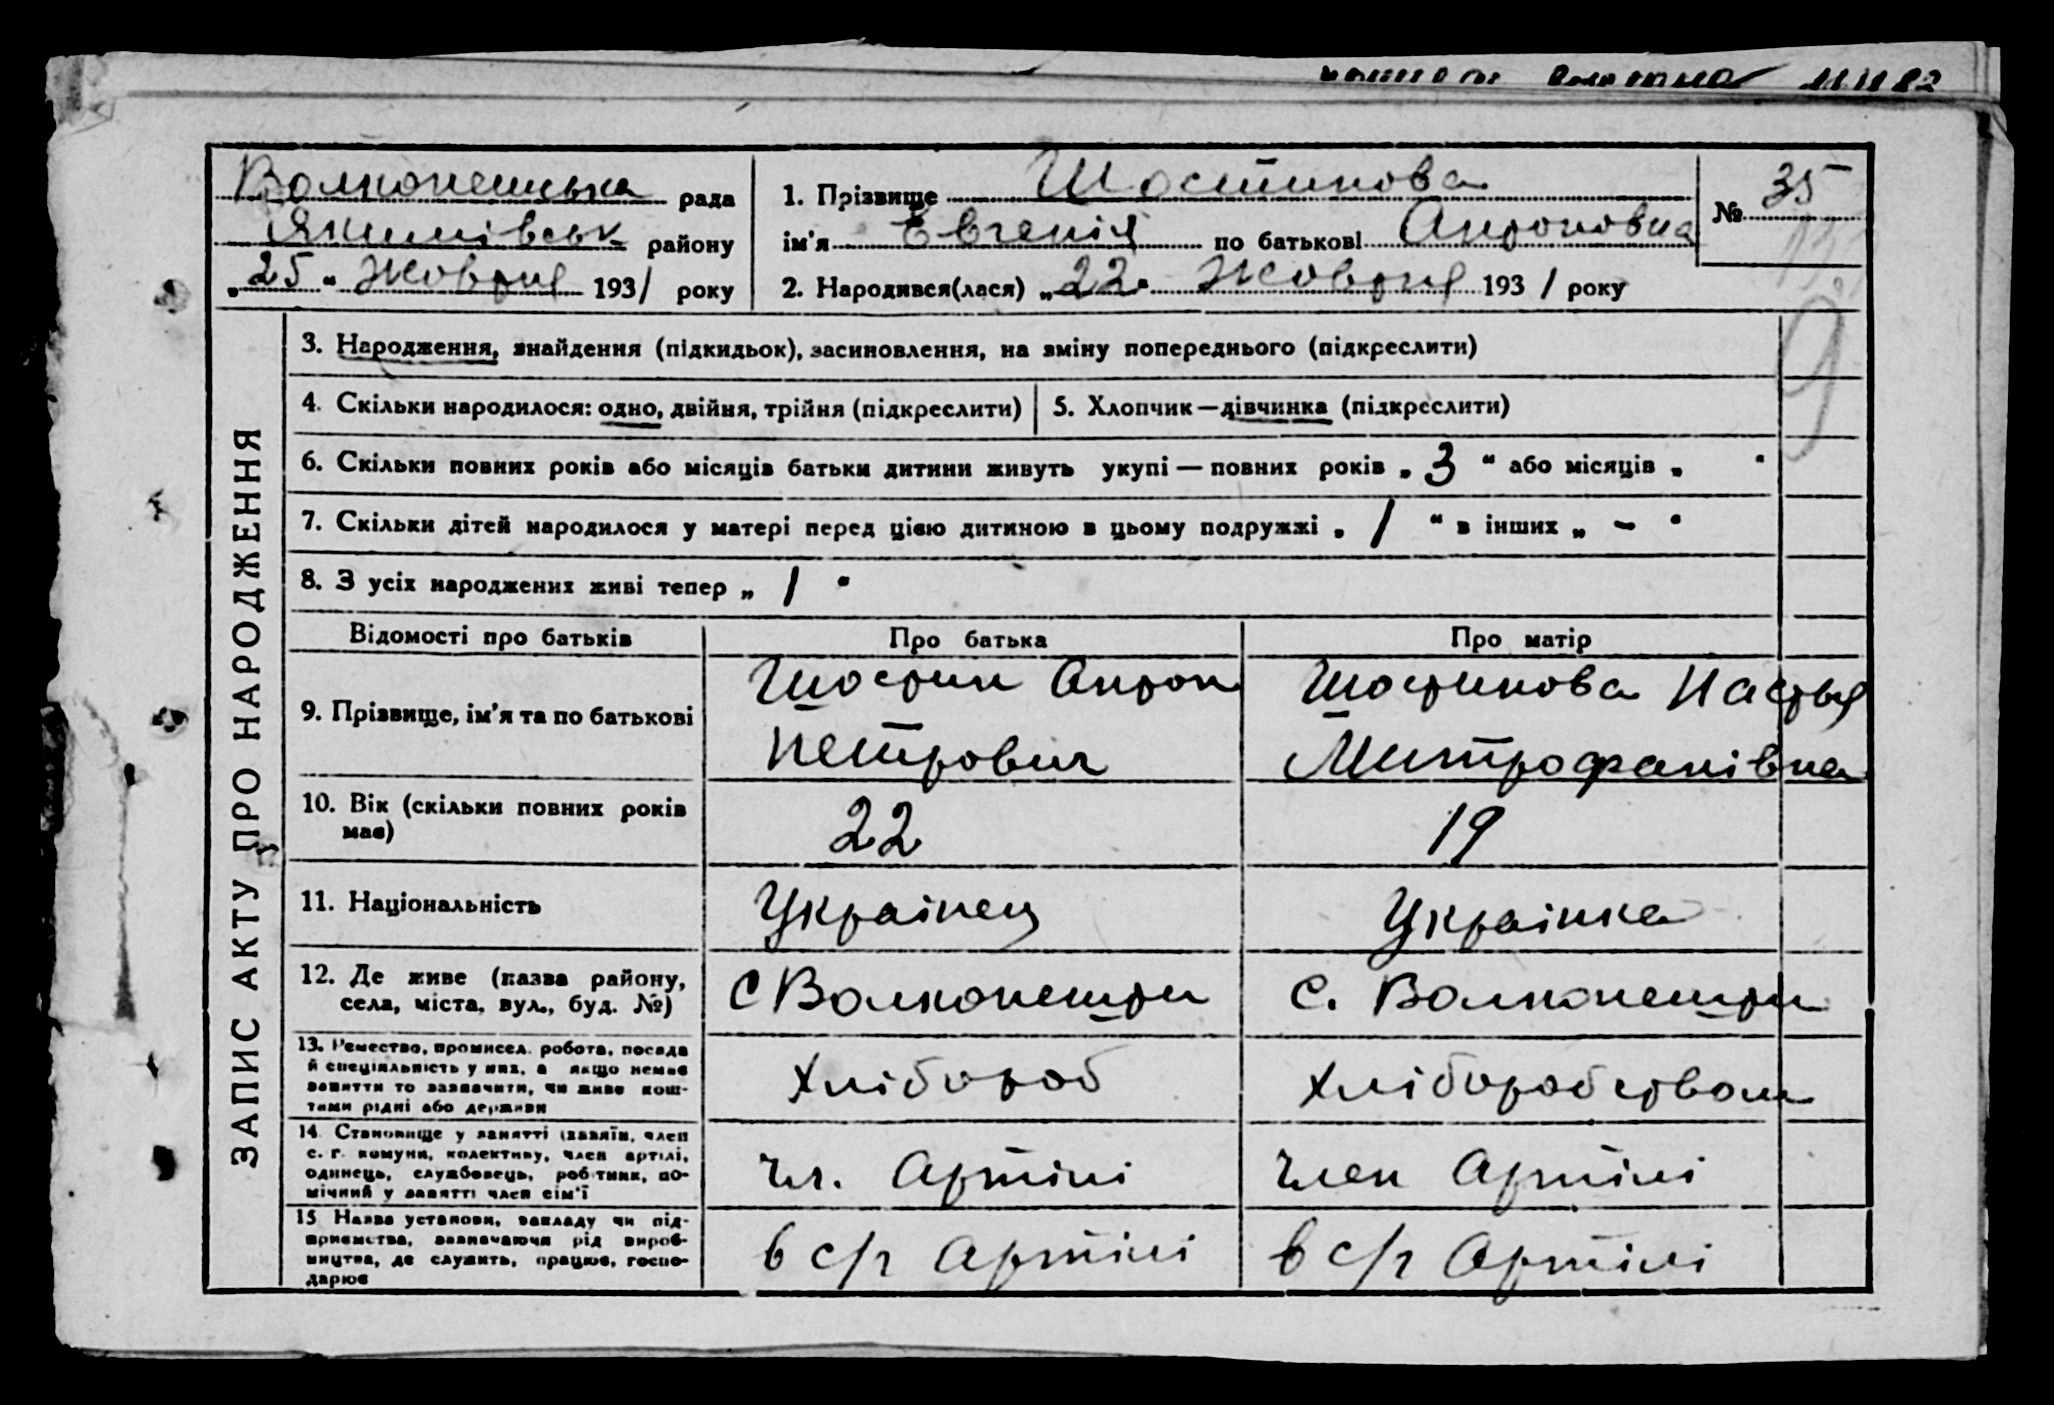 Волконешська рада
Якимівськ району
„25“ Жовтня 1931 року
1. Прізвище Шостинова
ім'я Евгенія по батькові Антоновна
2. Народився(лася) „22“ Жовтня 1931 року
№ 35
ЗАПИС АКТУ ПРО НАРОДЖЕННЯ
3. Народження, знайдення (підкидьок), засиновлення, на зміну попереднього (підкреслити)
4. Скільки народилося: одно, двійня, трійня (підкреслити)
5. Хлопчик—дівчинка (підкреслити)
6. Скільки повних років або місяців батьки дитини живуть укупі — повних років „ 3 “ або місяців „ “
7. Скільки дітей народилося у матері перед цією дитиною в цьому подружжі „ 1 “ в інших „ – “
8. З усіх народжених живі тепер „ 1 “
Відомості про батьків Про батька Про матір
9. Прізвище, ім'я та по батькові
Шостин Антон
Петрович
Шостинова Настья
Митрофанівна
10. Вік (скільки повних років
має)
22
19
11. Національність
Українец
Українка
12. Де живе (назва району,
села, міста, вул., буд. №)
С Волконешти
с. Волконешти
13. Ремество, промисел, робота, посада
й спеціяльність у них, а якщо немає
заняття то зазначити, чи живе кош-
тами рідні або держави
Хлібороб
Хлібороберством
14. Становище у занятті (хазяїн, член
с. г. комуни, колективу, член артілі,
одинець, службовець, робітник, по-
мічний у занятті член сім'ї
чл. Артілі
член Артілі
15. Назва установи, закладу чи під-
приємства, зазначаючи рід вироб-
ництва, де служить, працює, госпо-
дарює
в с/г Артілі
в с/г Артілі